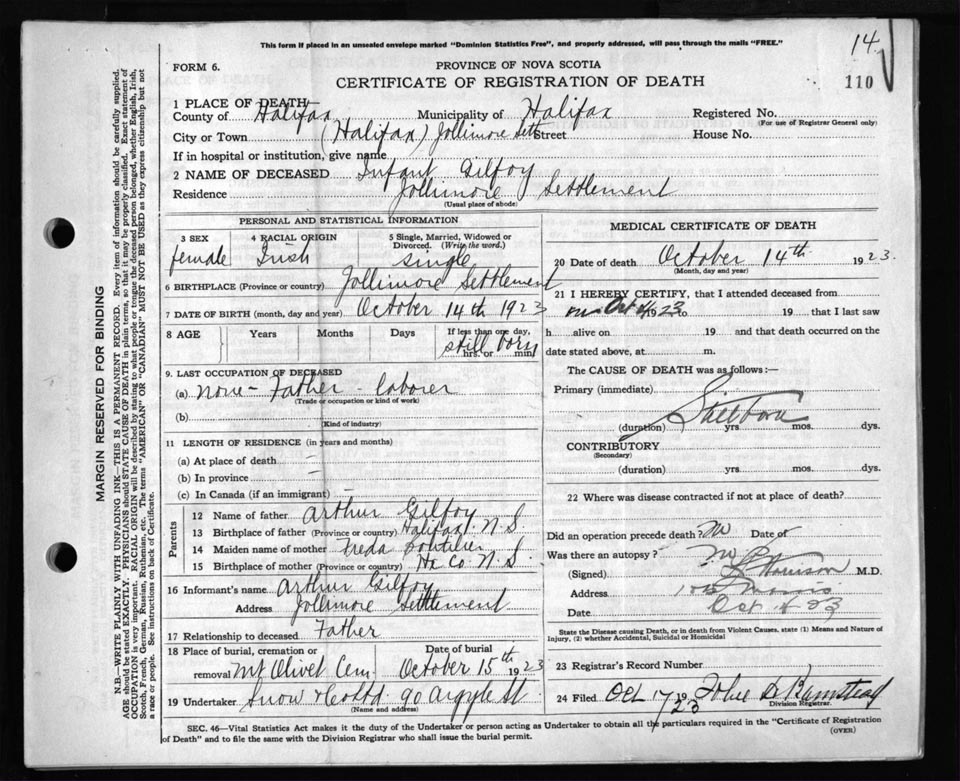 This form if placed in an unsealed envelope marked "Dominion Statistics Free", and properly addressed, will pass through the mails "FREE."
14
FORM 6.
PROVINCE OF NOVA SCOTIA
CERTIFICATE OF REGISTRATION OF DEATH
110
1 PLACE OF DEATH
County of Halifax Municipality of Halifax Registered No.
(For use of Registrar General only)
City or Town (Halifax) Jollimore Sett Street House No.
If in hospital or institution, give name
2 NAME OF DECEASED Infant Gilfoy
Residence Jollimore Settlement
(Usual place of abode)
PERSONAL AND STATISTICAL INFORMATION
3 SEX 4 RACIAL ORIGIN 5 Single, Married, Widowed or Divorced. (Write the word.)
female Irish single
6 BIRTHPLACE (Province or country) Jollimore Settlement
7 DATE OF BIRTH (month, day and year) October 14th 1923
8 AGE Years Months Days If less than one day, hrs. or min.
still born
9. LAST OCCUPATION OF DECEASED
(a) none - Father - laborer
(Trade or occupation or kind of work)
(b)
(Kind of industry)
11 LENGTH OF RESIDENCE (in years and months)
(a) At place of death –
(b) In province –
(c) In Canada (if an immigrant) –
Parents
12 Name of father Arthur Gilfoy
13 Birthplace of father (Province or country) Halifax N.S.
14 Maiden name of mother Freda Boutilier
15 Birthplace of mother (Province or country) Hx Co. N.S.
16 Informant's name Arthur Gilfoy
Address Jollimore Settlement
17 Relationship to deceased Father
18 Place of burial, cremation or removal Date of burial
Mt Olivet Cem October 15th 1923
19 Undertaker Snow & Co Ltd 90 Argyle St
(Name and address)
MEDICAL CERTIFICATE OF DEATH
20 Date of death October 14th 1923.
(Month, day and year)
21 I HEREBY CERTIFY, that I attended deceased from
on Oct 1923 to 19 that I last saw
h alive on 19 and that death occurred on the
date stated above, at m.
The CAUSE OF DEATH was as follows:—
Primary (immediate)
Stillborn
(duration) yrs. mos. dys.
CONTRIBUTORY
(Secondary)
(duration) yrs. mos. dys.
22 Where was disease contracted if not at place of death?
Did an operation precede death? No Date of
Was there an autopsy? No
(Signed) M.D.
Address Morris
Date Oct 23
State the Disease causing Death, or in death from Violent Causes, state (1) Means and Nature of Injury, (2) whether Accidental, Suicidal or Homicidal
23 Registrar's Record Number
24 Filed Oct 17 1923
Division Registrar.
SEC. 46—Vital Statistics Act makes it the duty of the Undertaker or person acting as Undertaker to obtain all the particulars required in the "Certificate of Registration
of Death" and to file the same with the Division Registrar who shall issue the burial permit.
(OVER)
MARGIN RESERVED FOR BINDING
N.B.—WRITE PLAINLY, WITH UNFADING INK—THIS IS A PERMANENT RECORD. Every item of information should be carefully supplied.
AGE should be stated EXACTLY. PHYSICIANS should STATE CAUSE OF DEATH in plain terms, so that it may be properly classified. Exact statement of
OCCUPATION is very important. RACIAL ORIGIN will be described by stating to what people or tongue the deceased person belonged, whether English, Irish,
Scotch, French, German, Russian, Ruthenian, etc. The terms "AMERICAN" or "CANADIAN" MUST NOT BE USED as they express citizenship but not
a race or people. See instructions on back of Certificate.